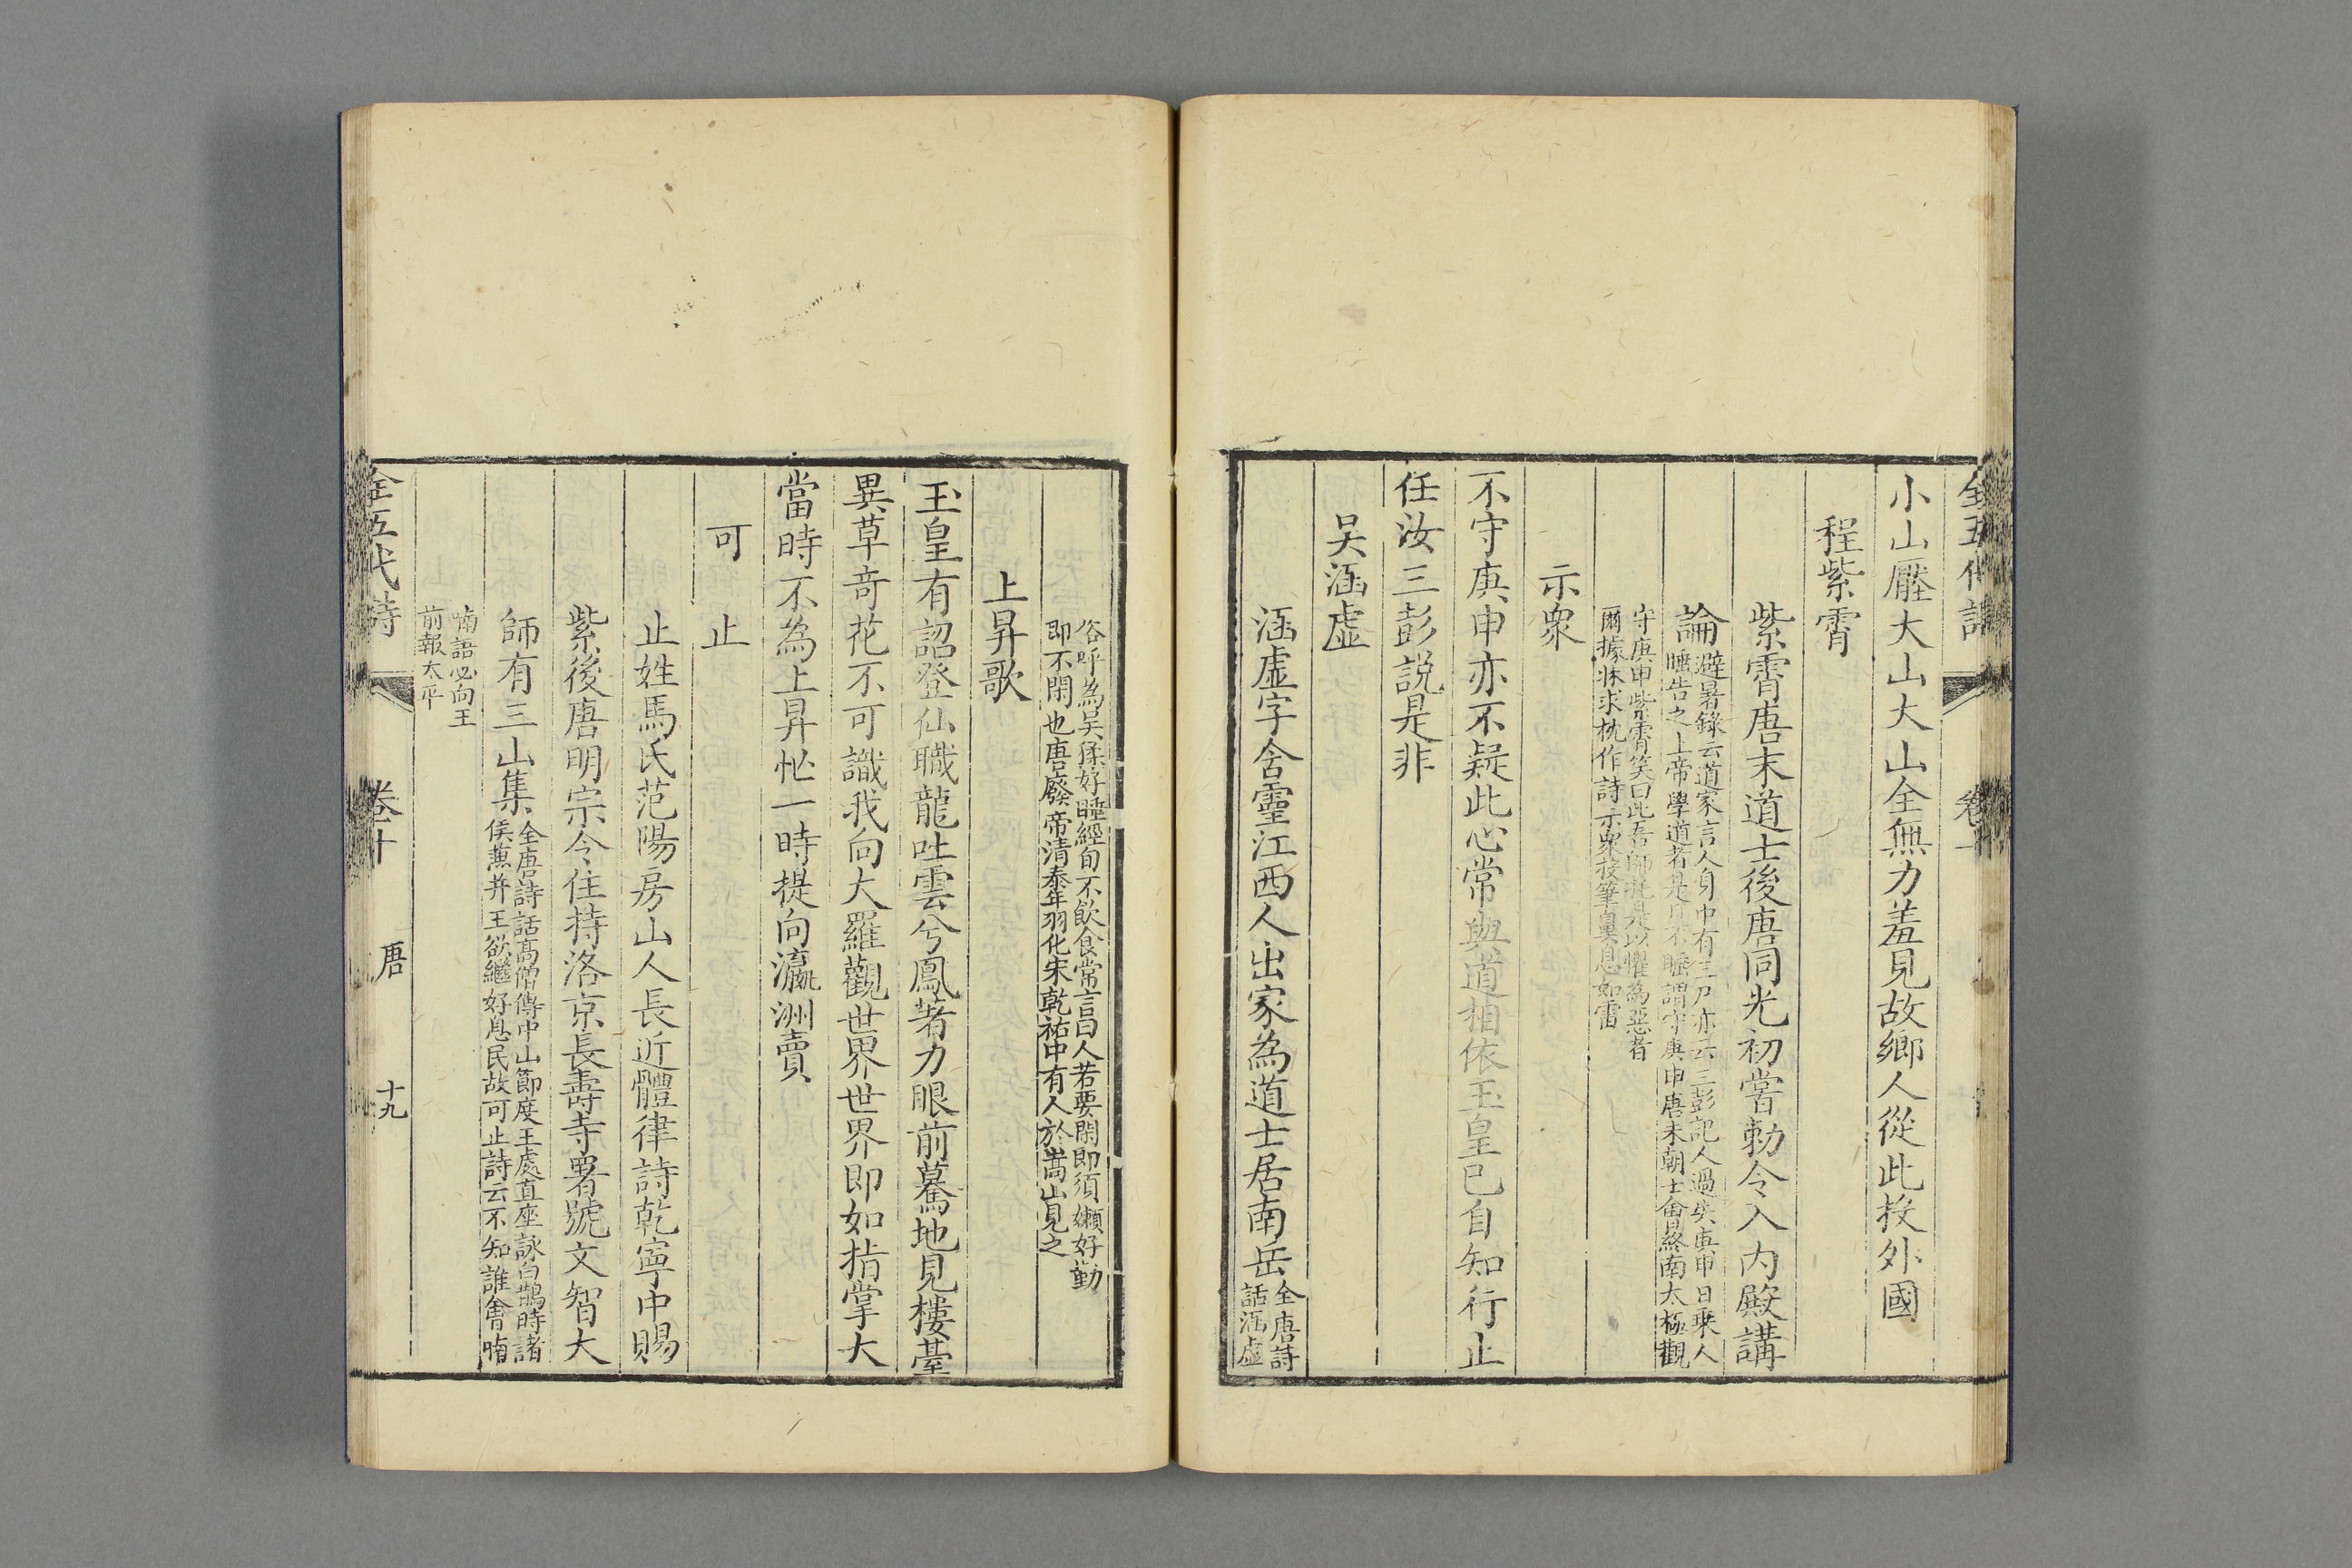 小山壓大山大山全無力羞見故鄉人從此投外國
程紫霄
紫霄唐末道士後唐同光初嘗勅令入內殿講
論
避暑錄云道家言人身中有三尸亦云三彭記人過失庚申日乘人
睡告之上帝學道者是日不睡謂守庚申唐末朝士會終南太極觀
守庚申紫霄笑曰此吾師托是以懼為惡者
爾據牀求枕作詩示眾投筆鼻息如雷
示眾
不守庚申亦不疑此心常與道相依玉皇已自知行止
任汝三彭說是非
吳涵虛
涵虛字含靈江西人出家為道士居南岳
全唐詩
話涵虛
俗呼為吳猱好睡經旬不飲食常言曰人若要閑即須懶好勤
即不閑也唐廢帝清泰年羽化宋乾祐中有人於嵩山見之
上昇歌
玉皇有詔登仙職龍吐雲兮鳳著力眼前驀地見樓臺
異草奇花不可識我向大羅觀世界世界即如指掌大
當時不為上昇忙一時提向瀛洲賣
可止
止姓馬氏范陽房山人長近體律詩乾寧中賜
紫後唐明宗令住持洛京長壽寺署號文智大
師有三山集
全唐詩話高僧傳中山節度王處直座詠白鵲時諸
侯蕪并王欲繼好息民故可止詩云不知誰會喃
喃語必向王
前報太平
全五代詩
卷十
唐
十九